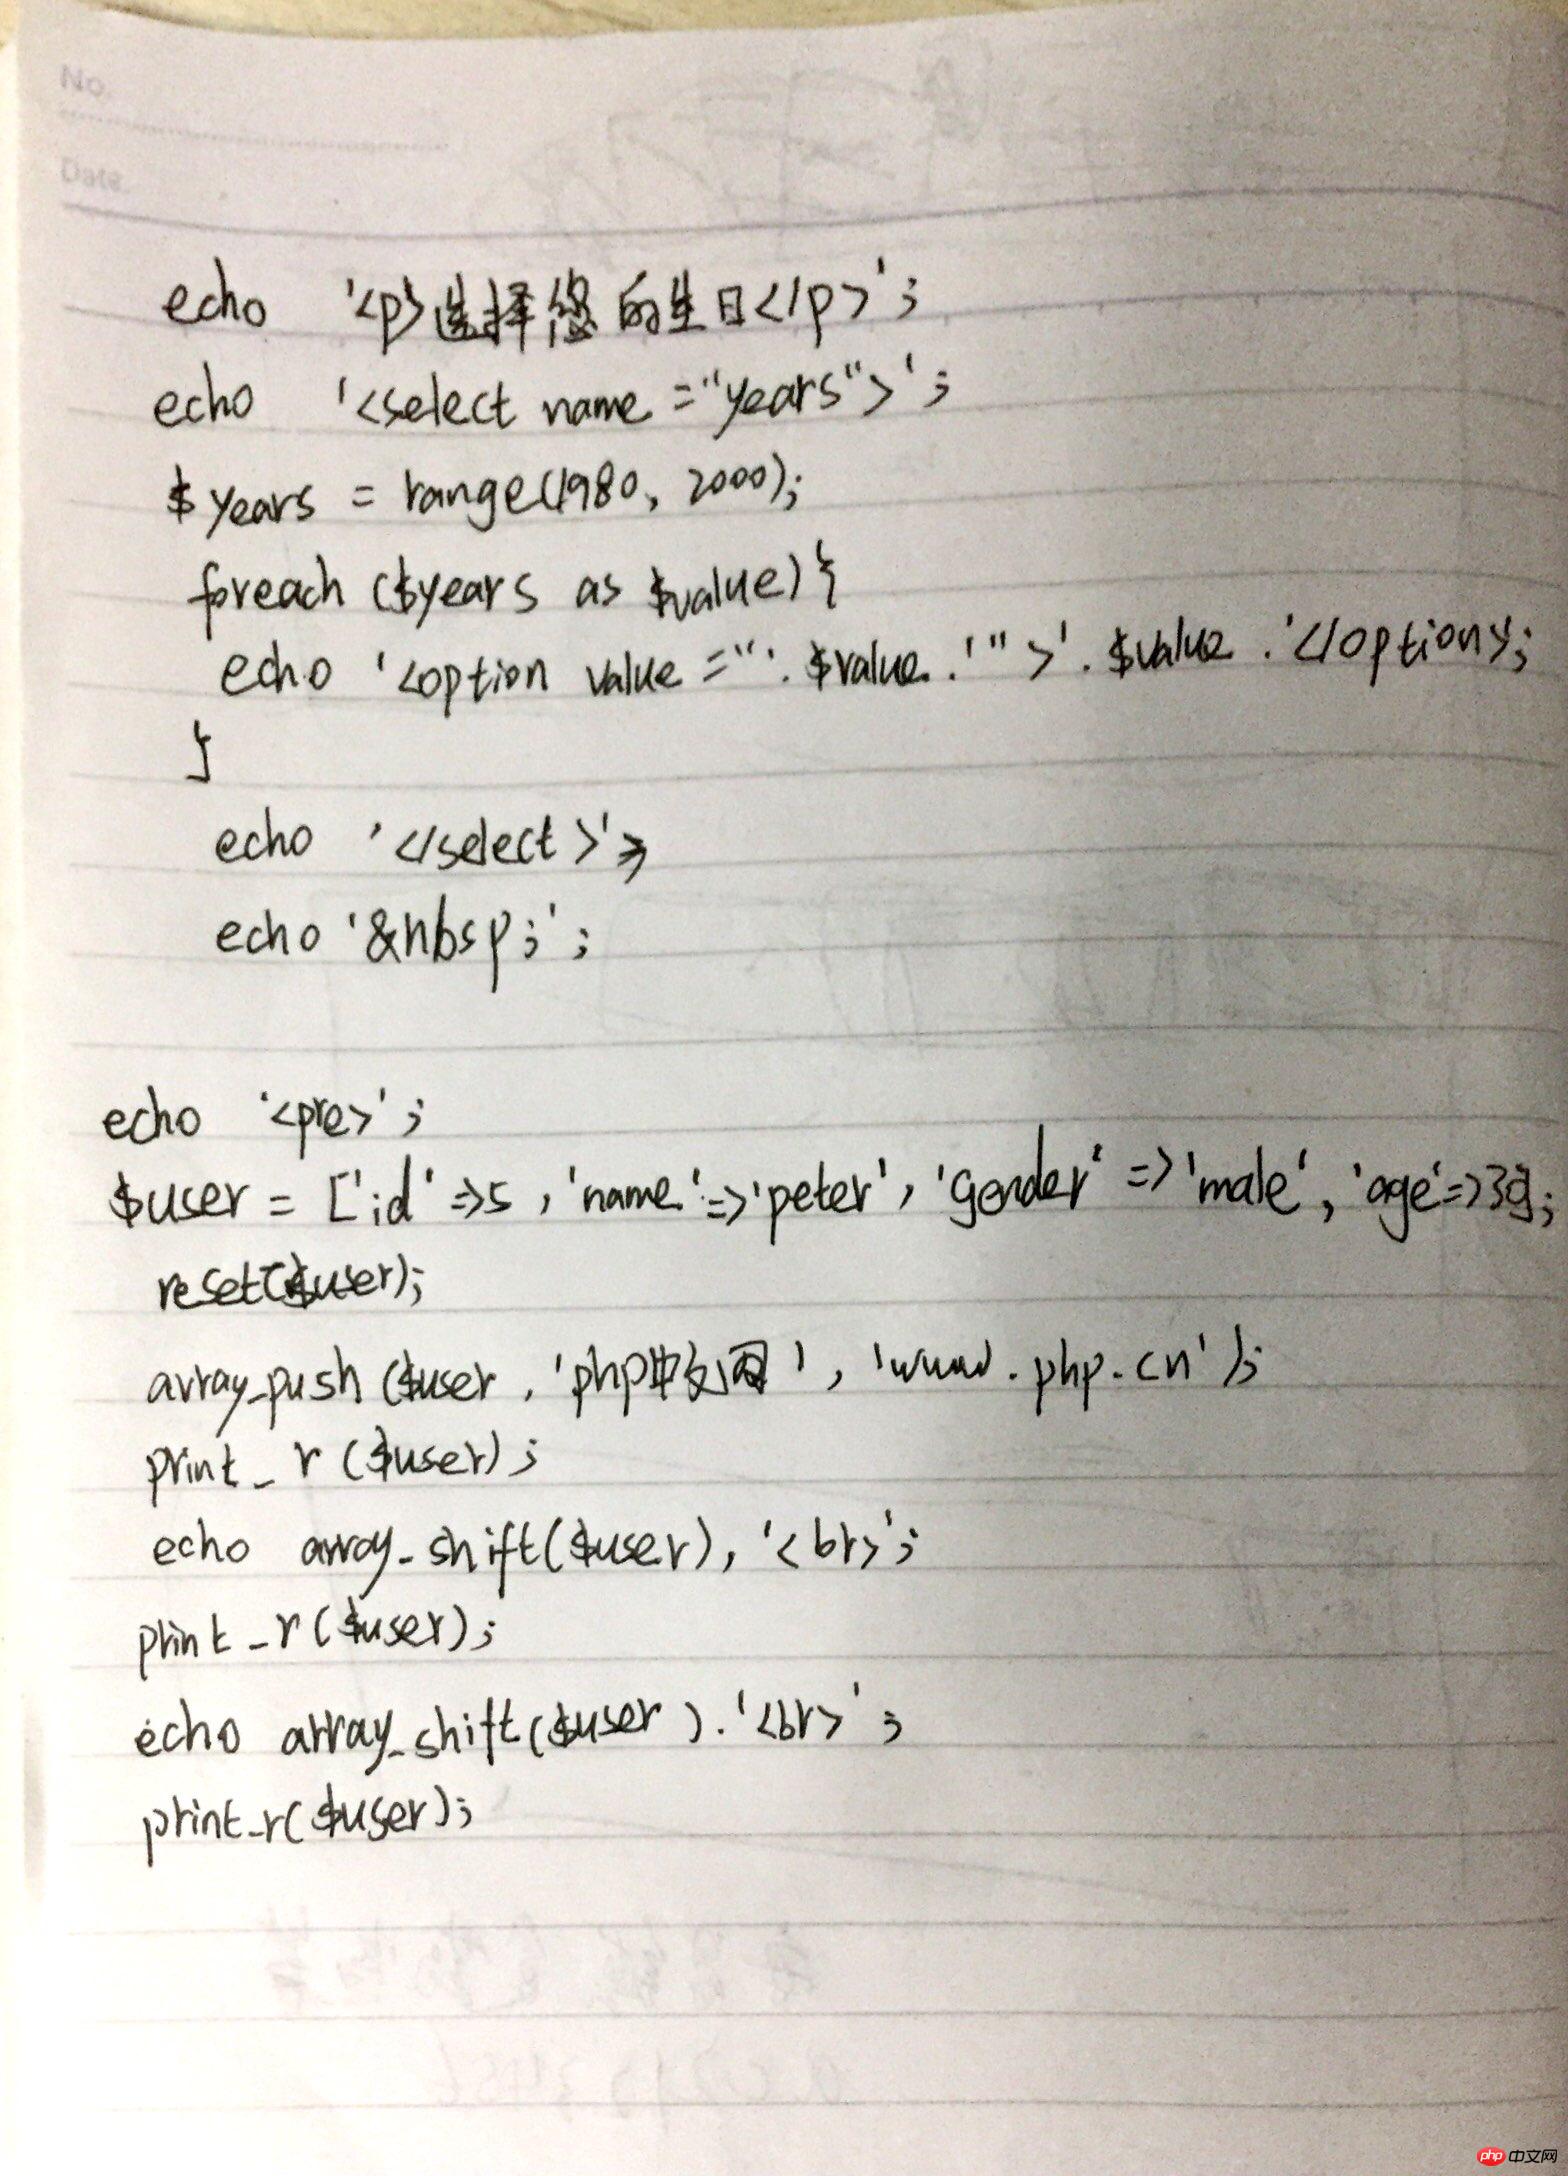 No.
Date.
echo '<p>选择您的生日</p>';
echo '<select name="years">';
$years = range(1980, 2000);
foreach ($years as $value){
echo '<option value="'.$value.'">'.$value.'</option>';
}
echo '</select>';
echo '&nbsp;';
echo '<pre>';
$user = ['id'=>5,'name'=>'peter','gender'=>'male','age'=>30];
reset($user);
array_push($user,'php中文网','www.php.cn');
print_r($user);
echo array_shift($user),'<br>';
print_r($user);
echo array_shift($user).'<br>';
print_r($user);
php 中文网